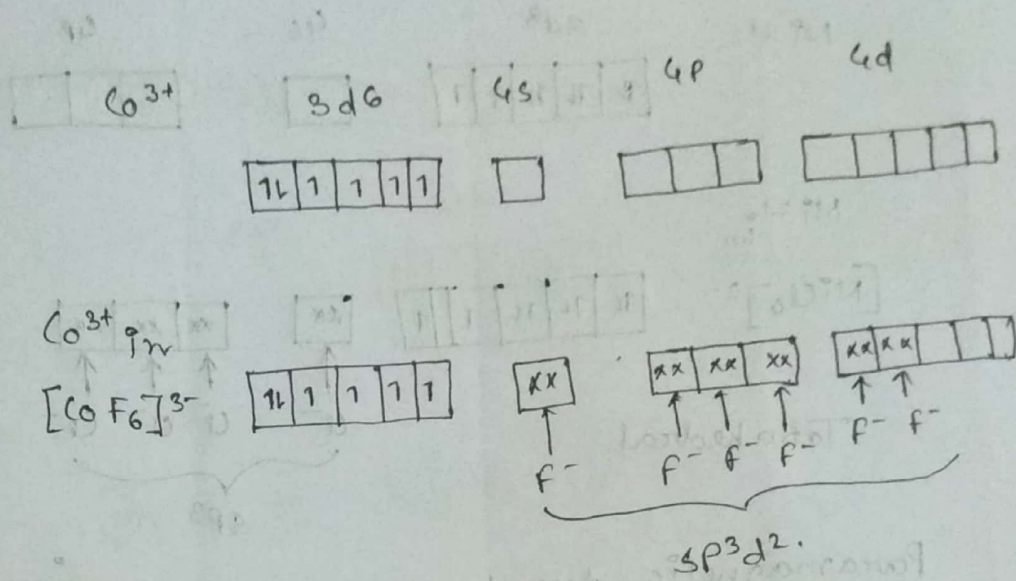 Co³⁺ 3d6 4s 4p 4d
1l 1 1 1 1
Co³⁺ in
[CoF₆]³⁻ 1l 1 1 1 1 xx xx xx xx xx xx
F⁻ F⁻ F⁻ F⁻ F⁻ F⁻
sp³d².